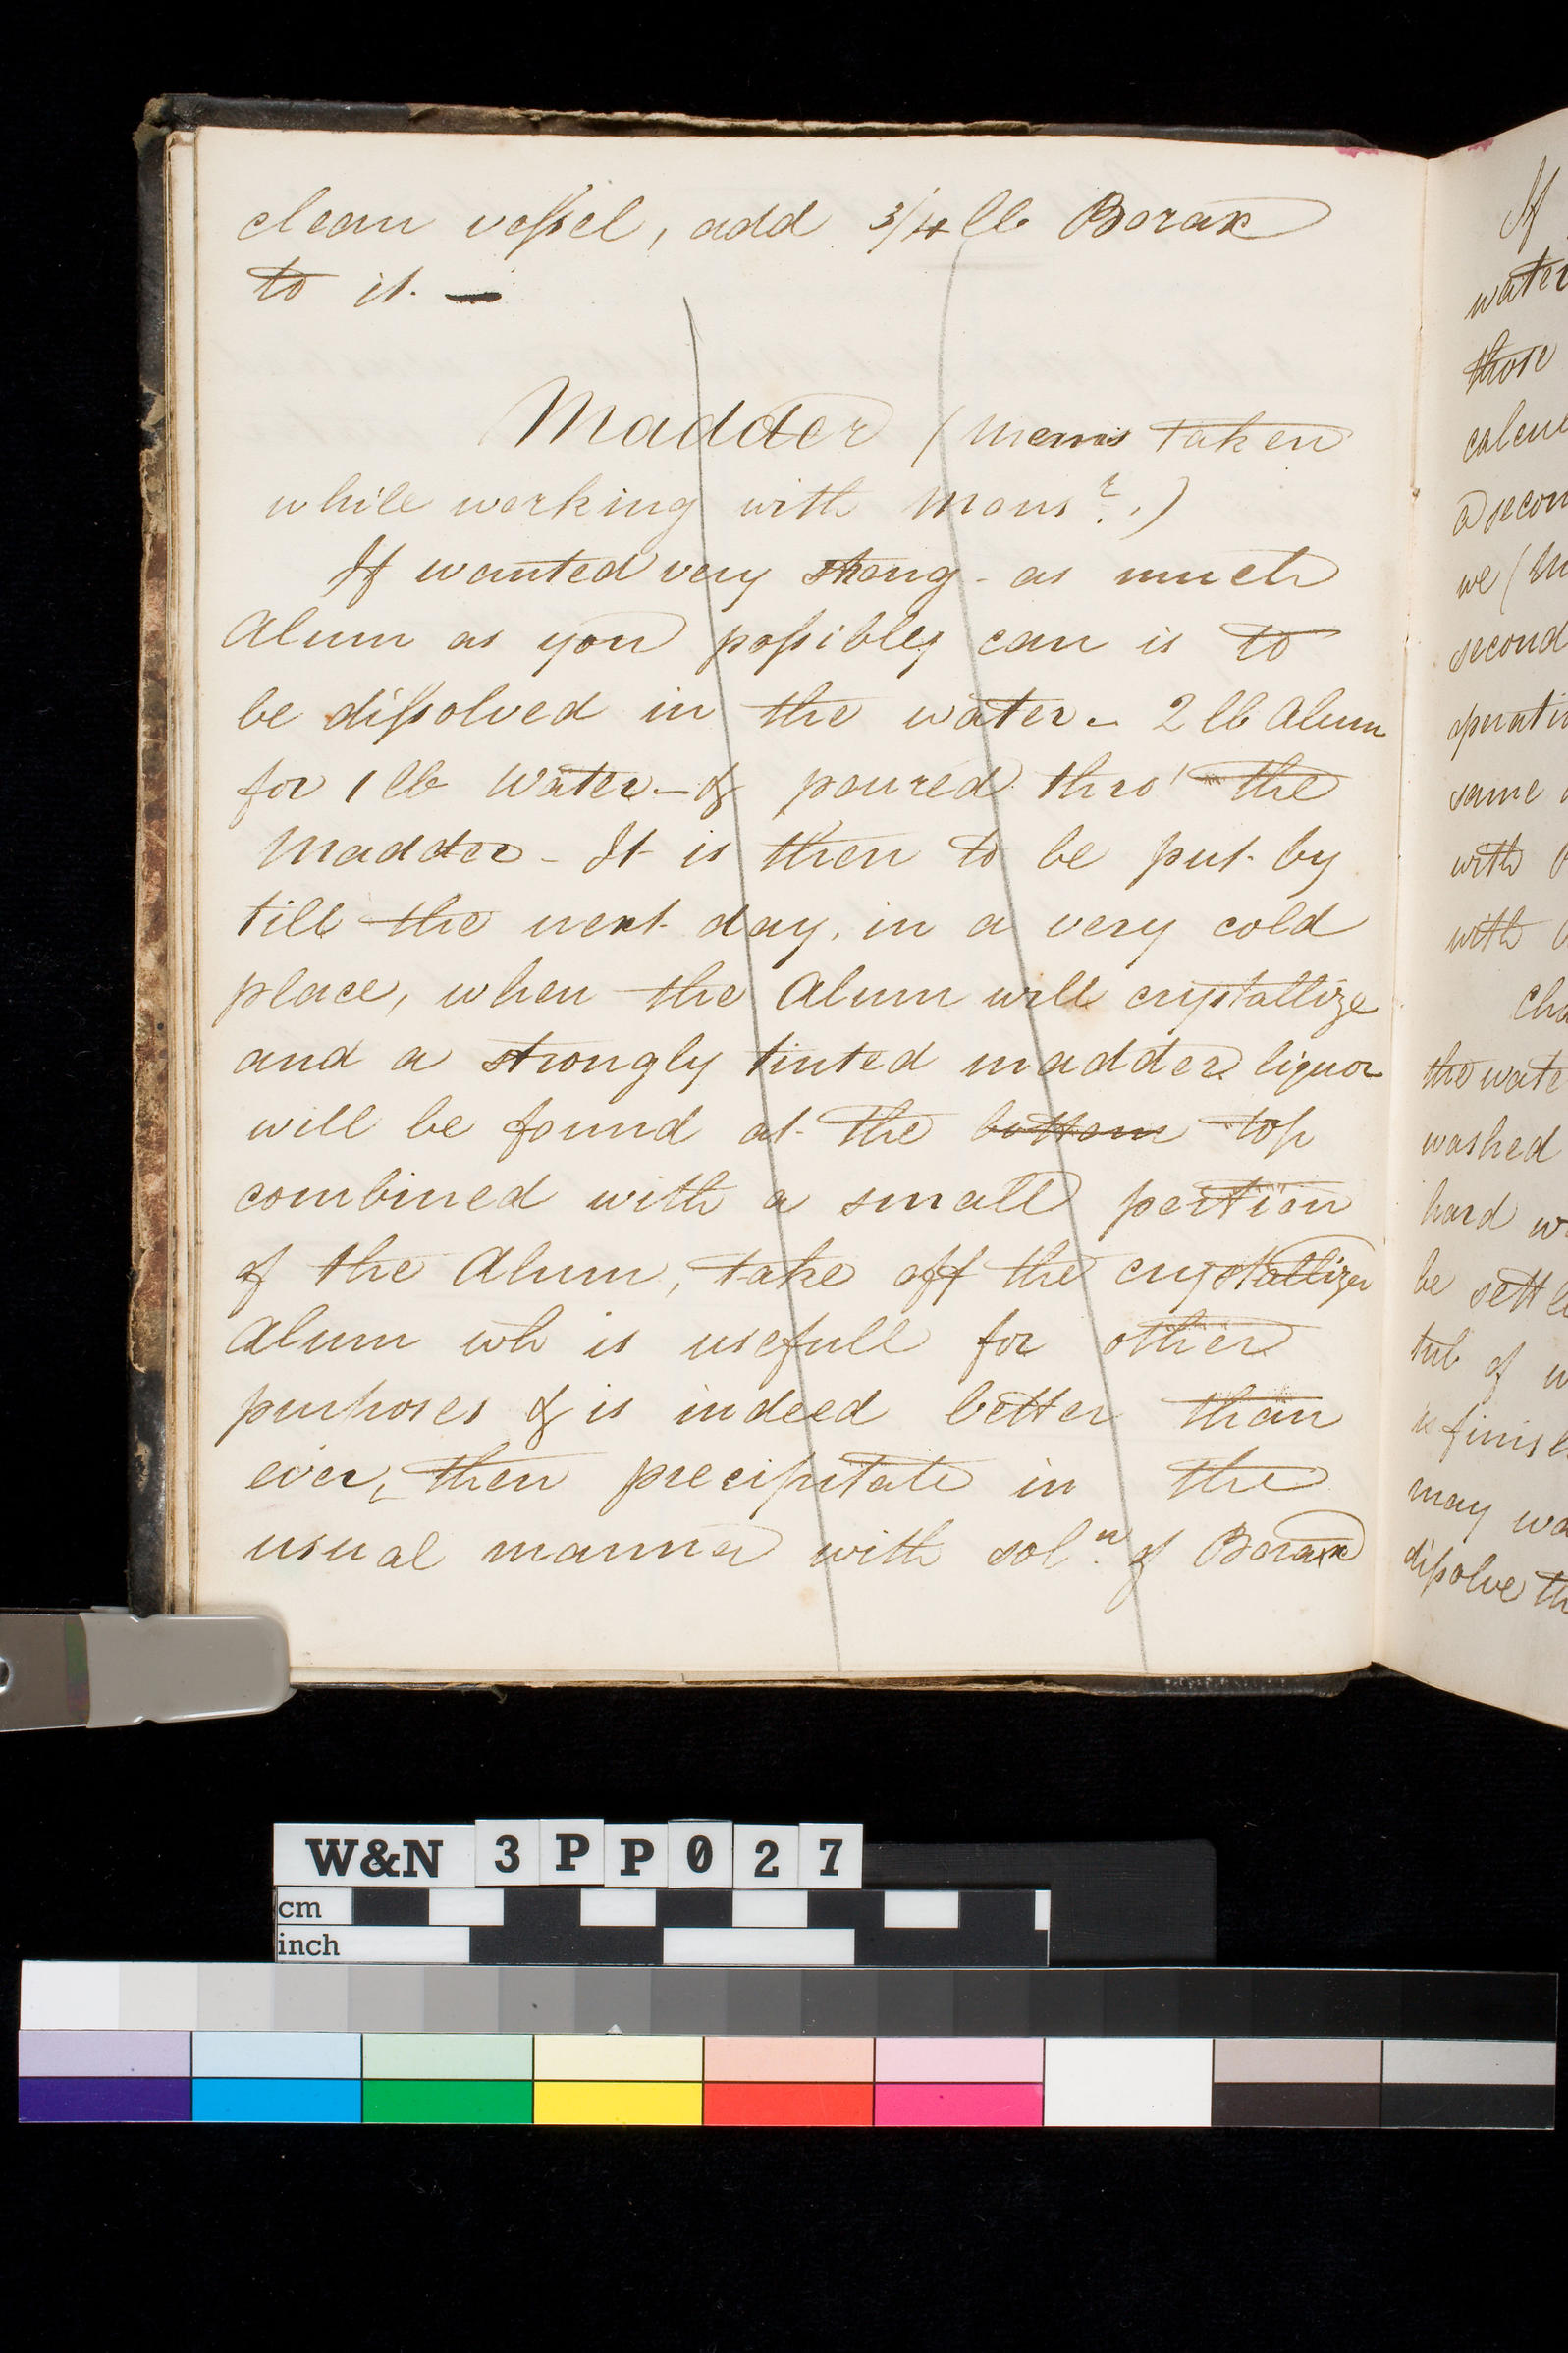 clean vessel, add 3/4 lb Borax
to it. —
Madder (Mems taken
while working with Mons.r.)
If wanted very strong - as much
Alum as you possibley can is to
be dissolved in the water - 2 lb Alum
for 1 lb Water - & poured thro' the
Madder - It is then to be put by
till the next day, in a very cold
place, when the Alum will crystallize
and a strongly tinted madder liquor
will be found at the bottom top
combined with a small portion
of the Alum, take off the crystallizer
Alum wh is usefull for other
purposes & is indeed better than
ever, then precipitate in the
usual manner with sol.n of Borax
If
water
those
a secon
we (
second
same
with
with
the wate
washed
hard
be settle
tub of
is finish
may
dissolve th
W&N 3PP027
cm
inch